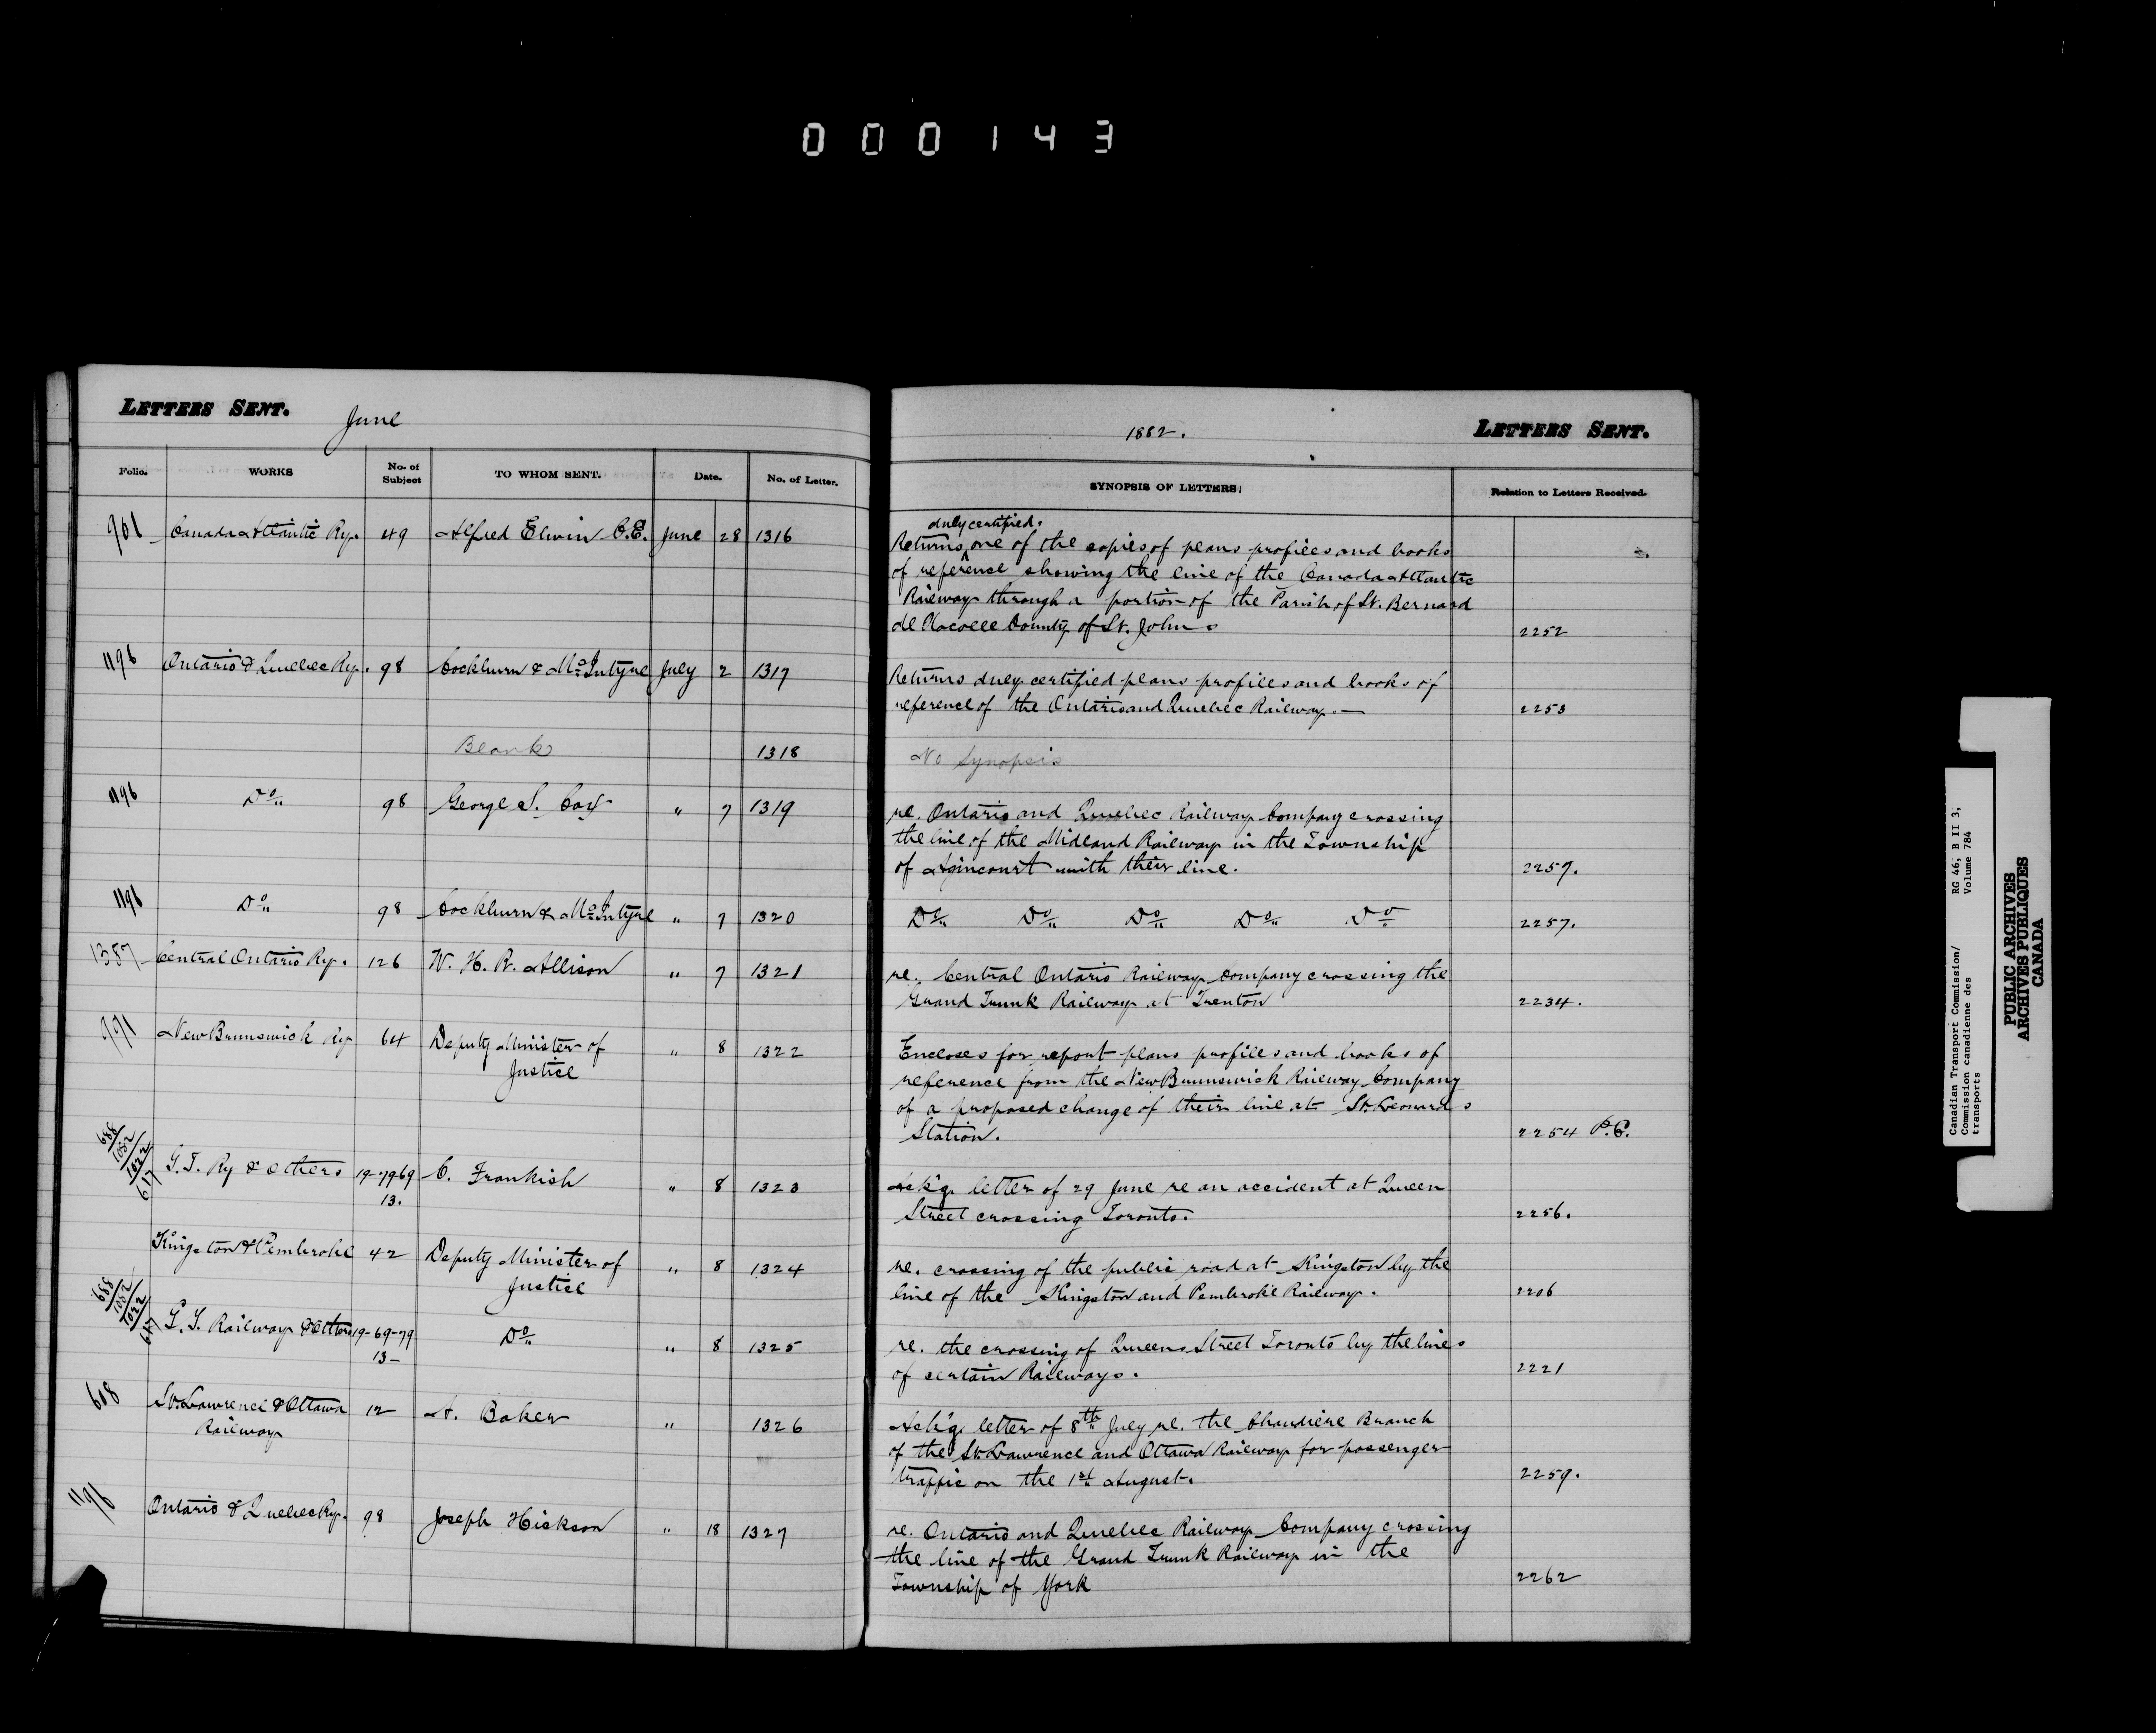 000143
LETTERS SENT.
June
Folio.
WORKS
No. of Subject
TO WHOM SENT.
Date.
No. of Letter.
961 Canada Atlantic Ry. 49 Alfred Elwin C.E. June 28 1316
1196 Ontario & Quebec Ry. 98 Cockburn & McIntyre July 2 1317
Blank 1318
1196 Do 98 George S. Cox " 7 1319
1196 Do 98 Cockburn & McIntyre " 7 1320
1387 Central Ontario Ry. 126 W. H. R. Allison " 7 1321
991 New Brunswick Ry 64 Deputy Minister of " 8 1322
Justice
688 1052 1022 617 G. T. Ry & others 19-79 69 C. Frankish " 8 1323
13.
Kingston & Pembroke 42 Deputy Minister of " 8 1324
Justice
688 1052 1022 617 G. T. Railway & others 19-69-79 Do " 8 1325
13-
608 St. Lawrence & Ottawa 12 A. Baker " 1326
Railway
1196 Ontario & Quebec Ry. 98 Joseph Hickson " 18 1327
1882.
LETTERS SENT.
SYNOPSIS OF LETTERS
Relation to Letters Received.
duly certified.
Returns one of the copies of plans profiles and books
of reference showing the line of the Canada Atlantic
Railway through a portion of the Parish of St. Bernard
de Lacolle County of St. Johns 2252
Returns duly certified plans profiles and books of
reference of the Ontario and Quebec Railway.— 2253
No Synopsis
re. Ontario and Quebec Railway Company crossing
the line of the Midland Railway in the Township
of Agincourt with their line. 2257.
Do Do Do Do Do 2257.
re. Central Ontario Railway Company crossing the
Grand Trunk Railway at Trenton 2234.
Encloses for report plans profiles and books of
reference from the New Brunswick Railway Company
of a proposed change of their line at St. Leonards
Station. 2254 P.C.
Ack'g. letter of 29 June re an accident at Queen
Street crossing Toronto. 2256.
re. crossing of the public road at Kingston by the
line of the Kingston and Pembroke Railway. 2206
re. the crossing of Queens Street Toronto by the lines
of certain Railways. 2221
Ack'g. letter of 8th July re. the Chaudiere Branch
of the St. Lawrence and Ottawa Railway for passenger
traffic on the 1st August. 2259.
re. Ontario and Quebec Railway Company crossing
the line of the Grand Trunk Railway in the
Township of York 2262
Canadian Transport Commission/ RG 46, B II 3,
Commission canadienne des Volume 784
transports
PUBLIC ARCHIVES
ARCHIVES PUBLIQUES
CANADA